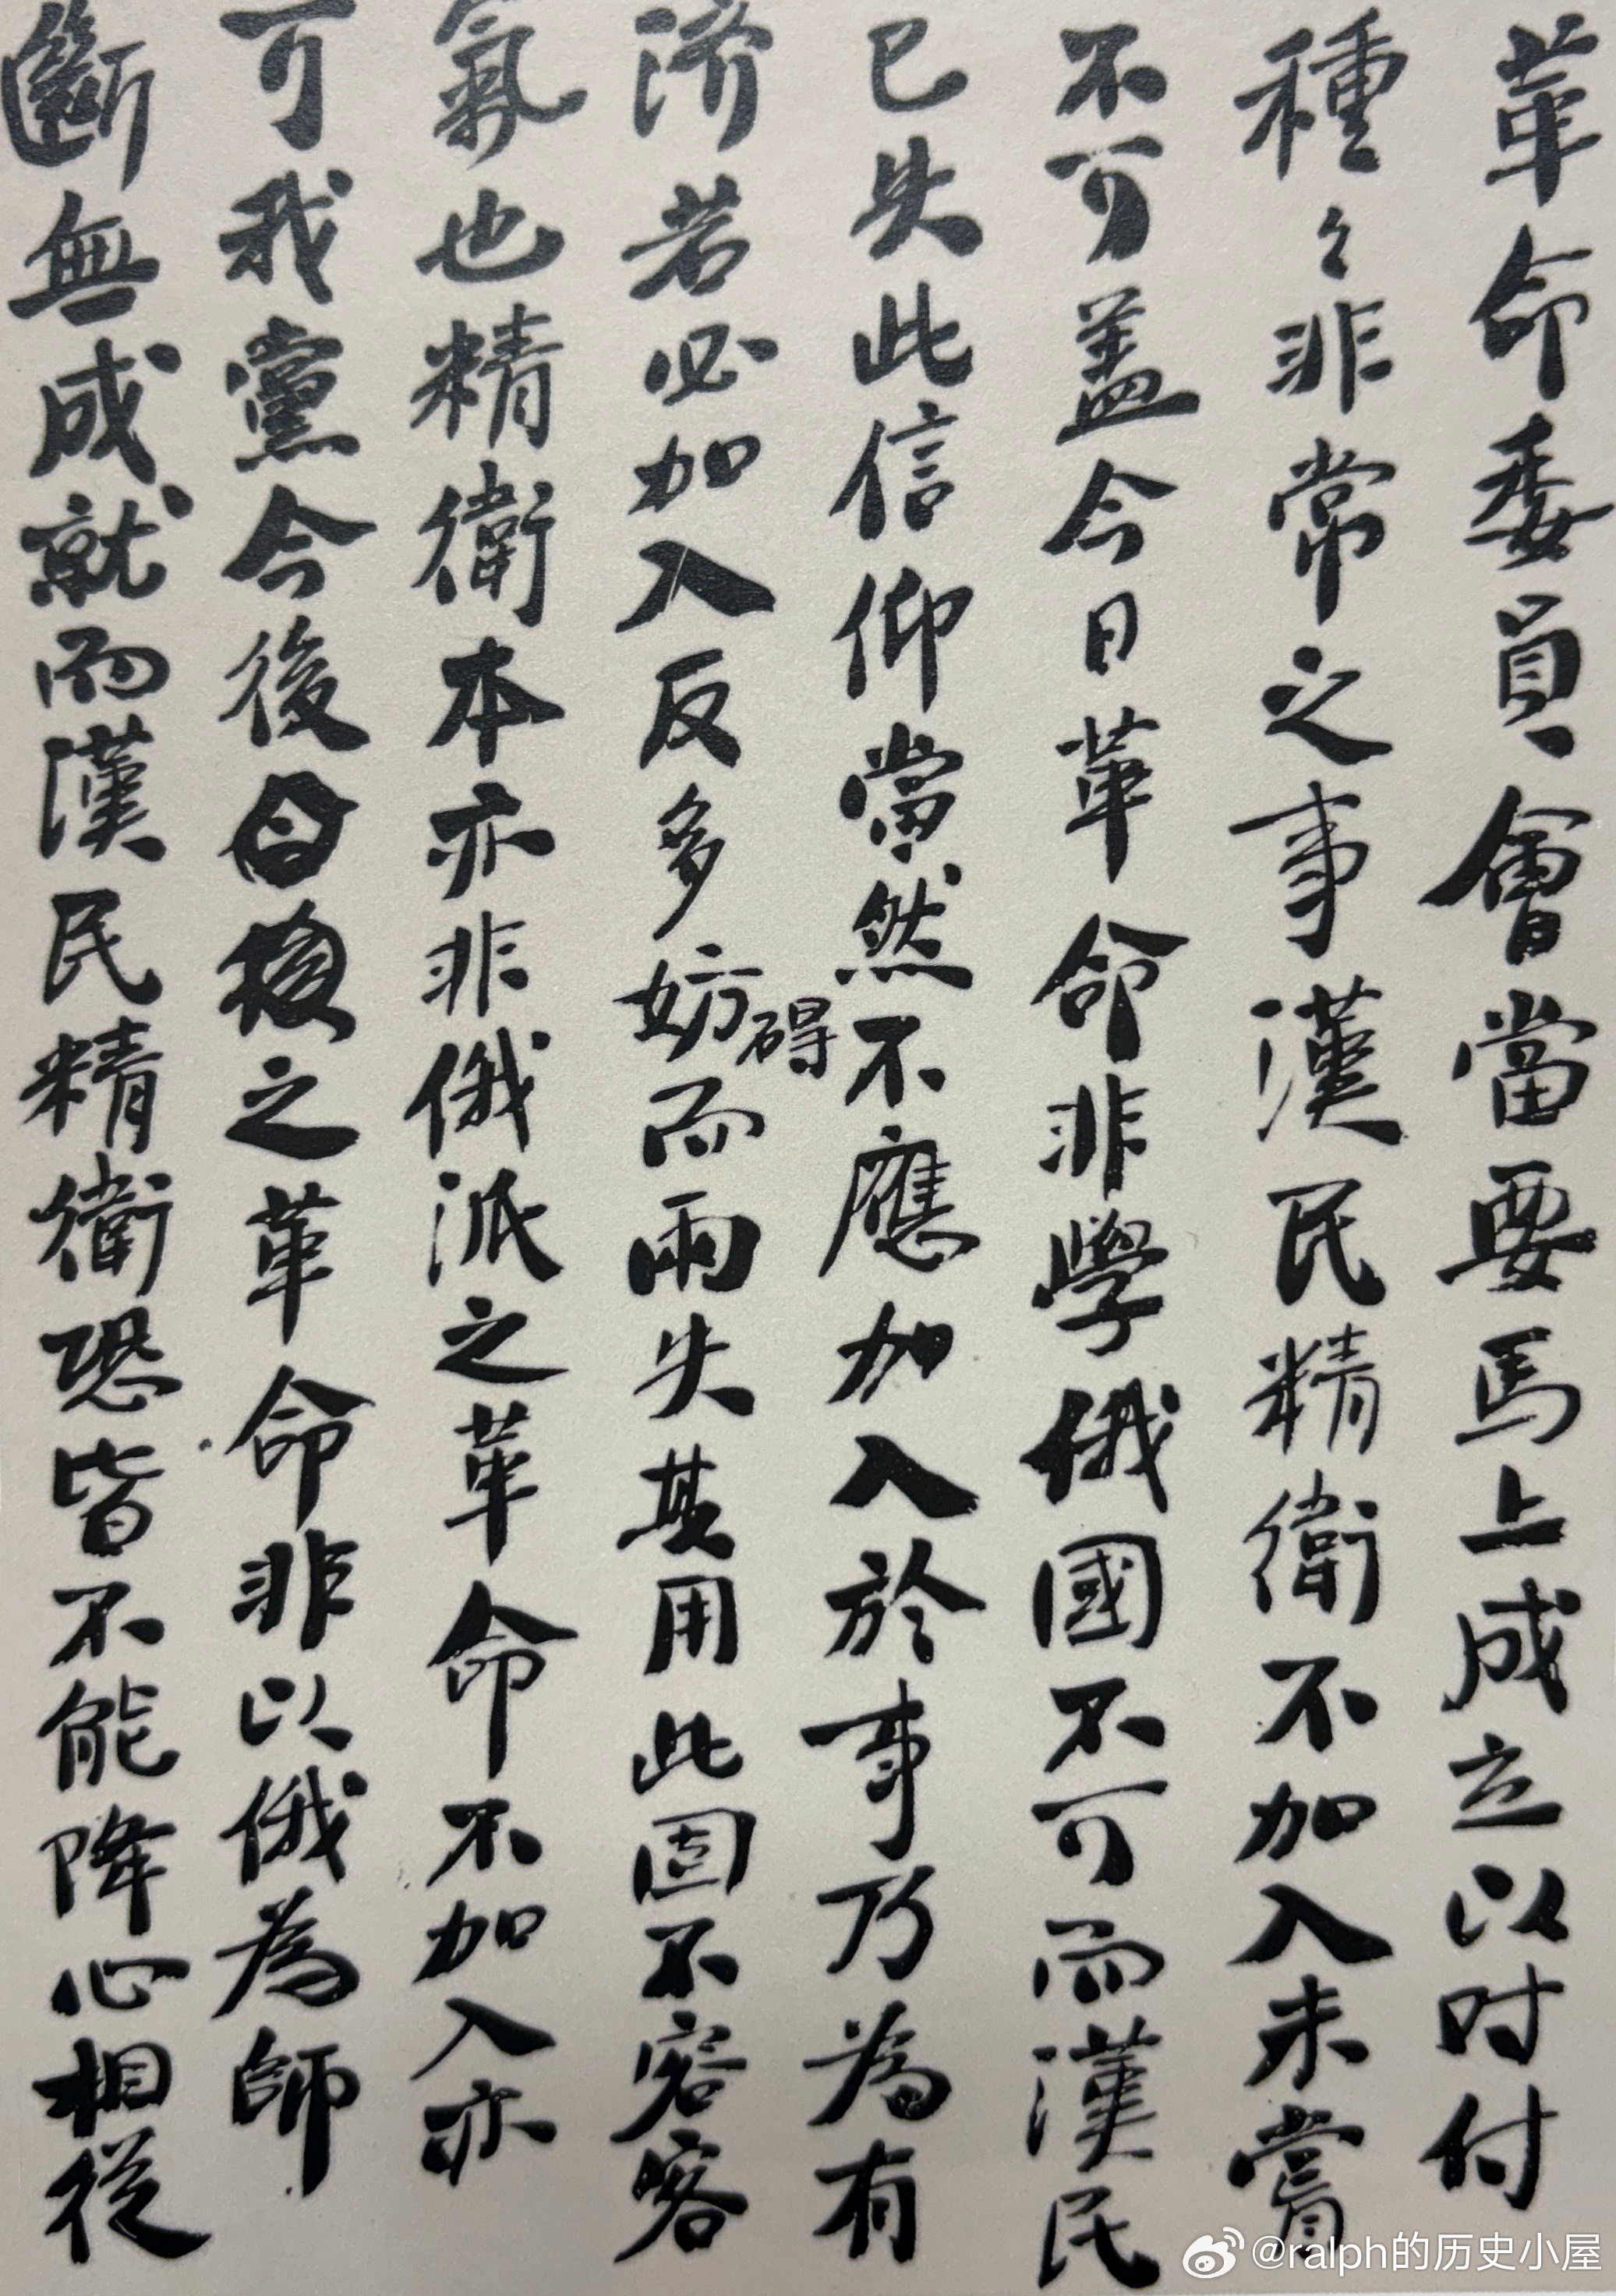 革命委員會當要馬上成立以时付
種々非常之事漢民精衛不加入未嘗
不可蓋今日革命非學俄國不可而漢民
已失此信仰當然不應加入於事乃為有
济若必加入反多妨碍而兩失其用此固不容客
氣也精衛本亦非俄派之革命不加入亦
可我黨今後之革命非以俄為師
斷無成就而漢民精衛恐皆不能降心相從
@ralph的历史小屋